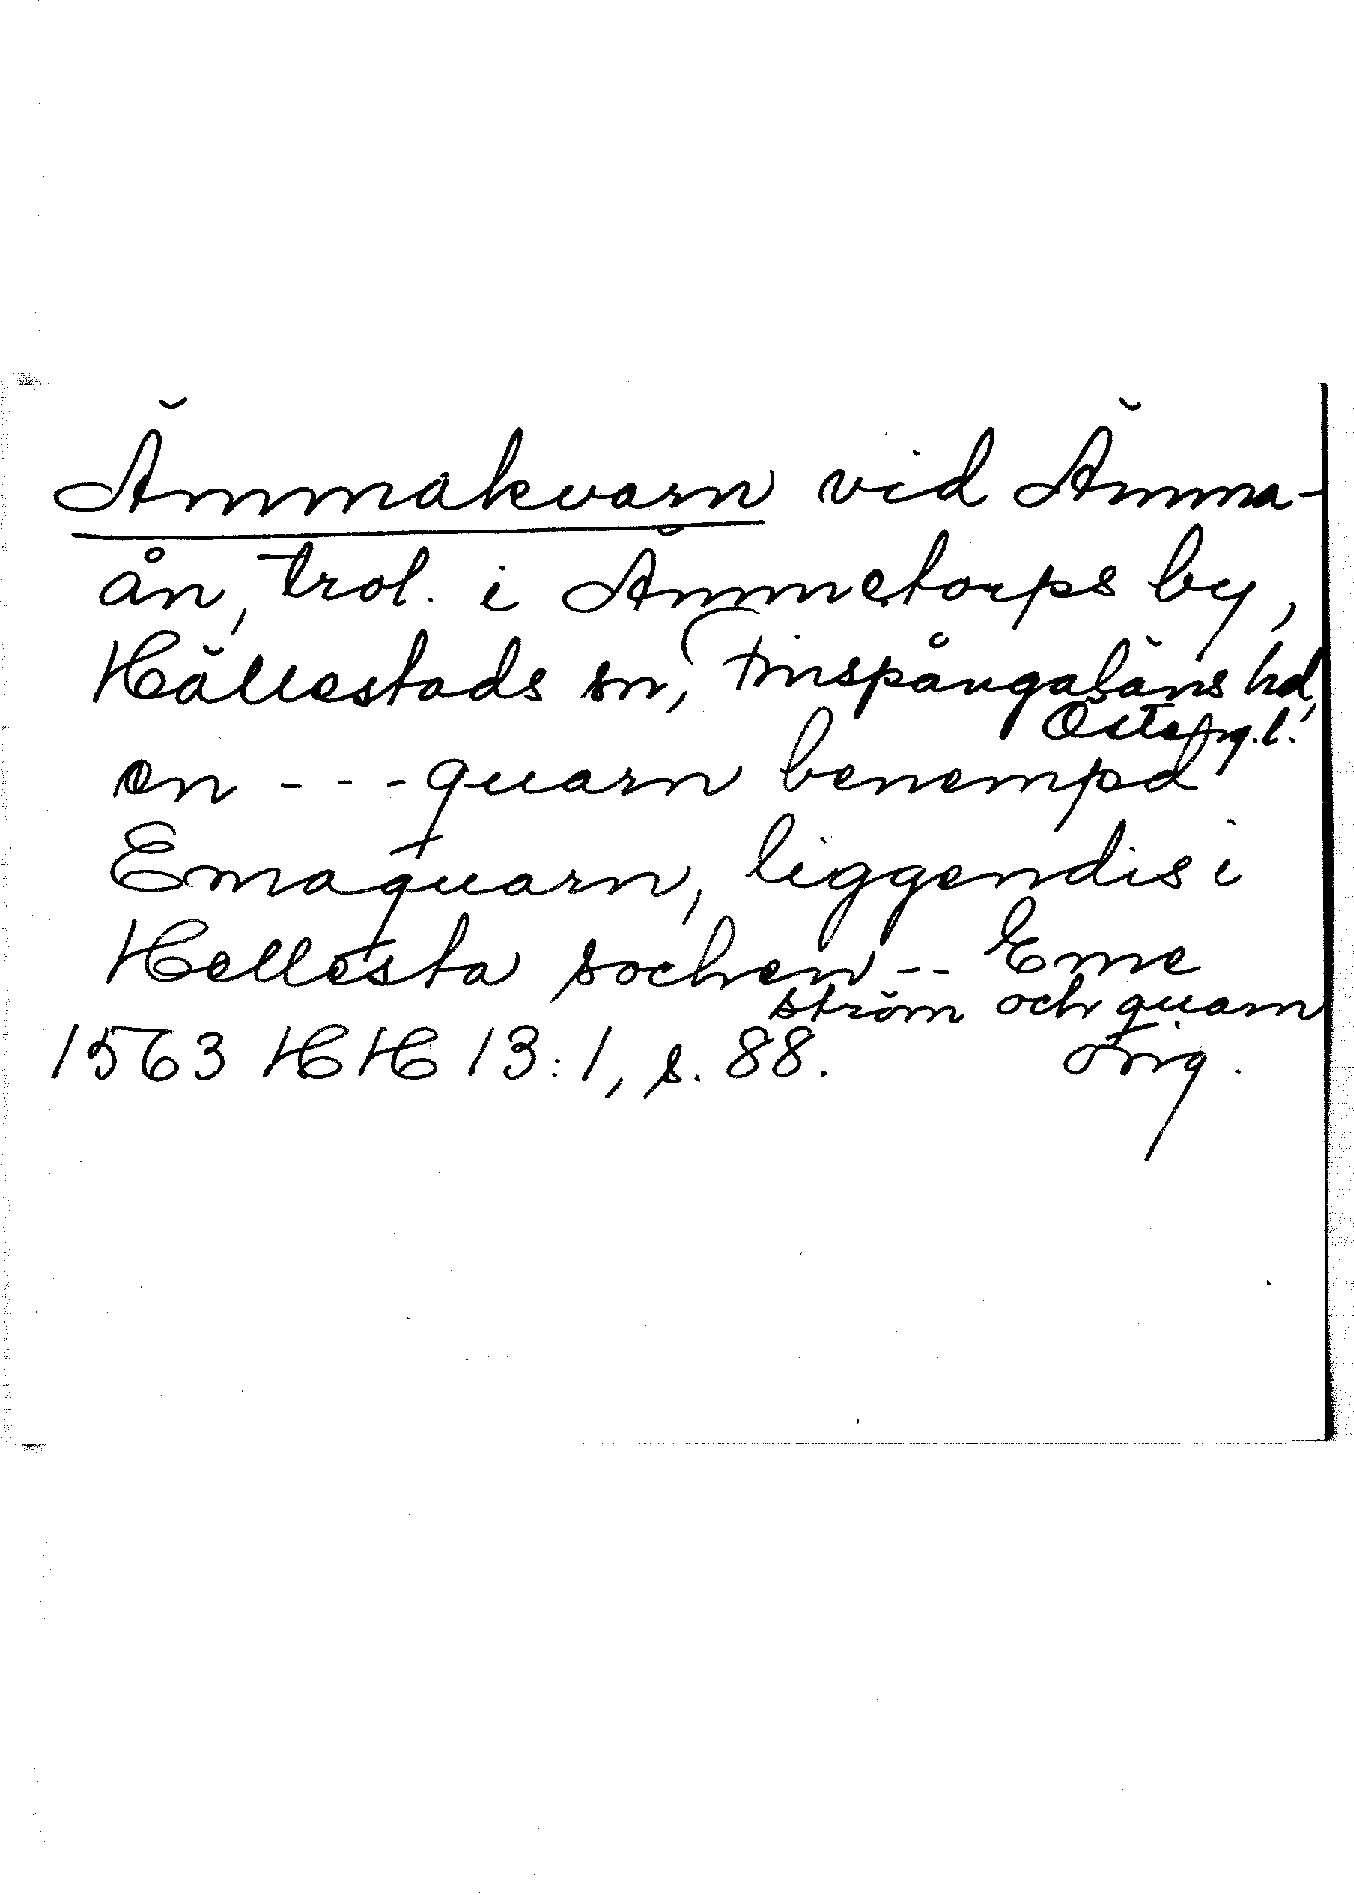 Ämmakvarn vid Ämma-
ån, trol. i Ämmetorps by,
Hällestads sn, Finspångaläns hd,
Österg.l.
en - - - quarn benempd
Emaquarn, liggendis i
Hellesta sochen -- Eme
ström och quarn
1563 HH 13:1, s. 88. Orig.